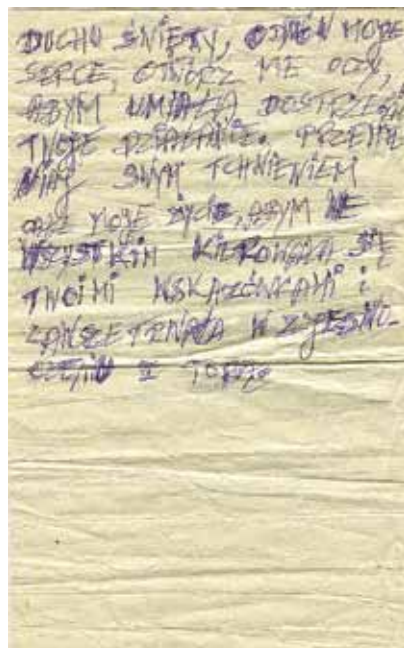 DUCHU ŚWIĘTY, ODNÓW MOJE
SERCE, OTWÓRZ ME OCZY,
ABYM UMIAŁA DOSTRZEC
TWOJE DZIAŁANIE. PRZEMIE
NIAJ SWYM TCHNIENIEM
CAŁE MOJE ŻYCIE, ABYM WE
WSZYSTKIM KIEROWAŁA SIĘ
TWOIMI WSKAZÓWKAMI i
ZAWSZE TRWAŁA W ZJEDNO-
CZENIU Z TOBĄ